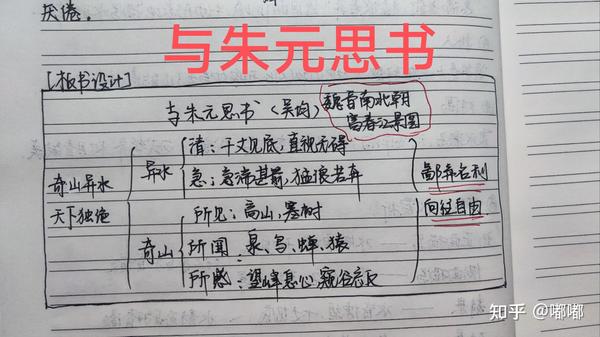 厌倦。
与朱元思书
[板书设计]
与朱元思书(吴均)
魏晋南北朝
富春江景图
奇山异水
天下独绝
异水
清:千丈见底,直视无碍
急:急湍甚箭,猛浪若奔
奇山
所见:高山,寒树
所闻:泉、鸟、蝉、猿
所感:望峰息心,窥谷忘反
鄙弃名利
向往自由
知乎 @嘟嘟